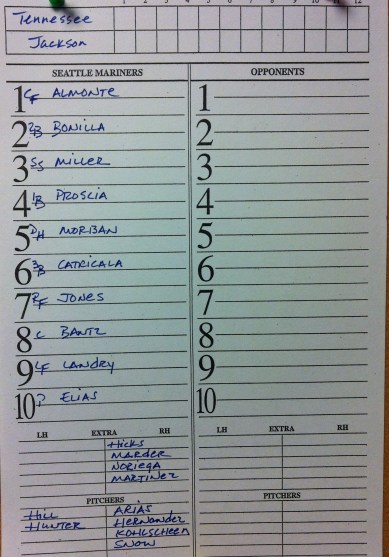 Tennessee
Jackson
SEATTLE MARINERS OPPONENTS
1 CF ALMONTE 1
2 2B BONILLA 2
3 SS MILLER 3
4 1B PROSCIA 4
5 DH MORBAN 5
6 3B CATRICALA 6
7 RF JONES 7
8 C BANTZ 8
9 LF LANDRY 9
10 P ELIAS 10
LH EXTRA RH LH EXTRA RH
Hicks
MARDER
NORIEGA
MARTINEZ
PITCHERS PITCHERS
Hill ARIAS
HUNTER Hernandez
KOHLSCHEEN
SNOW